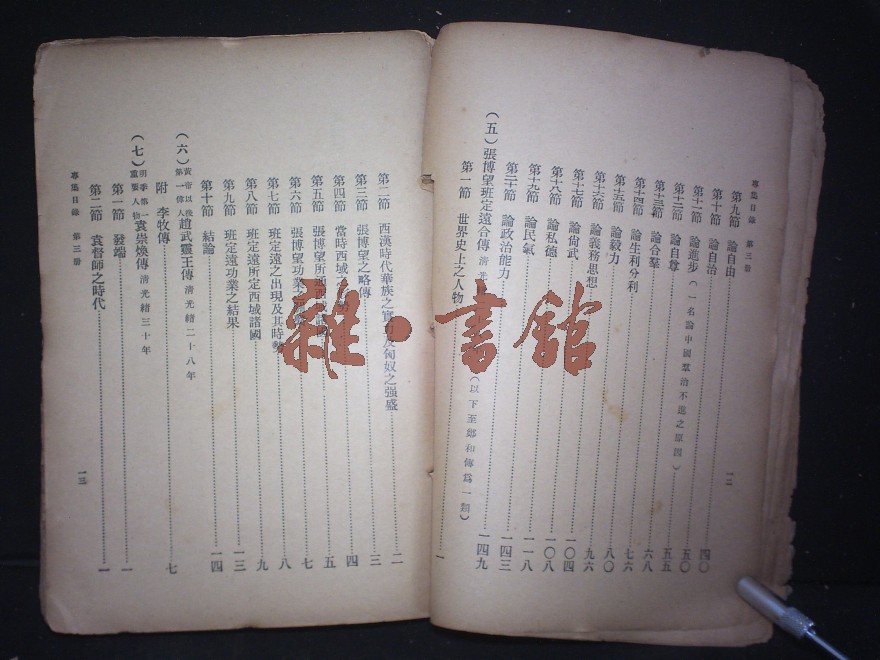 專集目錄 第三册 一二
第九節 論自由 四〇
第十節 論自治 五〇
第十一節 論進步(一名論中國羣治不進之原因) 五五
第十二節 論自尊 六八
第十三節 論合羣 七六
第十四節 論生利分利 八〇
第十五節 論毅力 九六
第十六節 論義務思想 一〇四
第十七節 論尚武 一〇八
第十八節 論私德 一一八
第十九節 論民氣 一四三
第二十節 論政治能力 一四九
(五)張博望班定遠合傳 清光 (以下至鄭和傳爲一類)
第一節 世界史上之人物 一
第二節 西漢時代華族之實 及匈奴之强盛 二
第三節 張博望之略傳 三
第四節 當時西域之 四
第五節 張博望所通西 五
第六節 張博望功業之 七
第七節 班定遠之出現及其時勢 八
第八節 班定遠所定西域諸國 九
第九節 班定遠功業之結果 一三
第十節 結論 一四
(六)黃帝以後第一偉人趙武靈王傳 清光緒二十八年
附 李牧傳 七
(七)明季第一重要人物袁崇煥傳 清光緒三十年
第一節 發端 一
第二節 袁督師之時代 一
專集目錄 第三册 一三
雜·書館